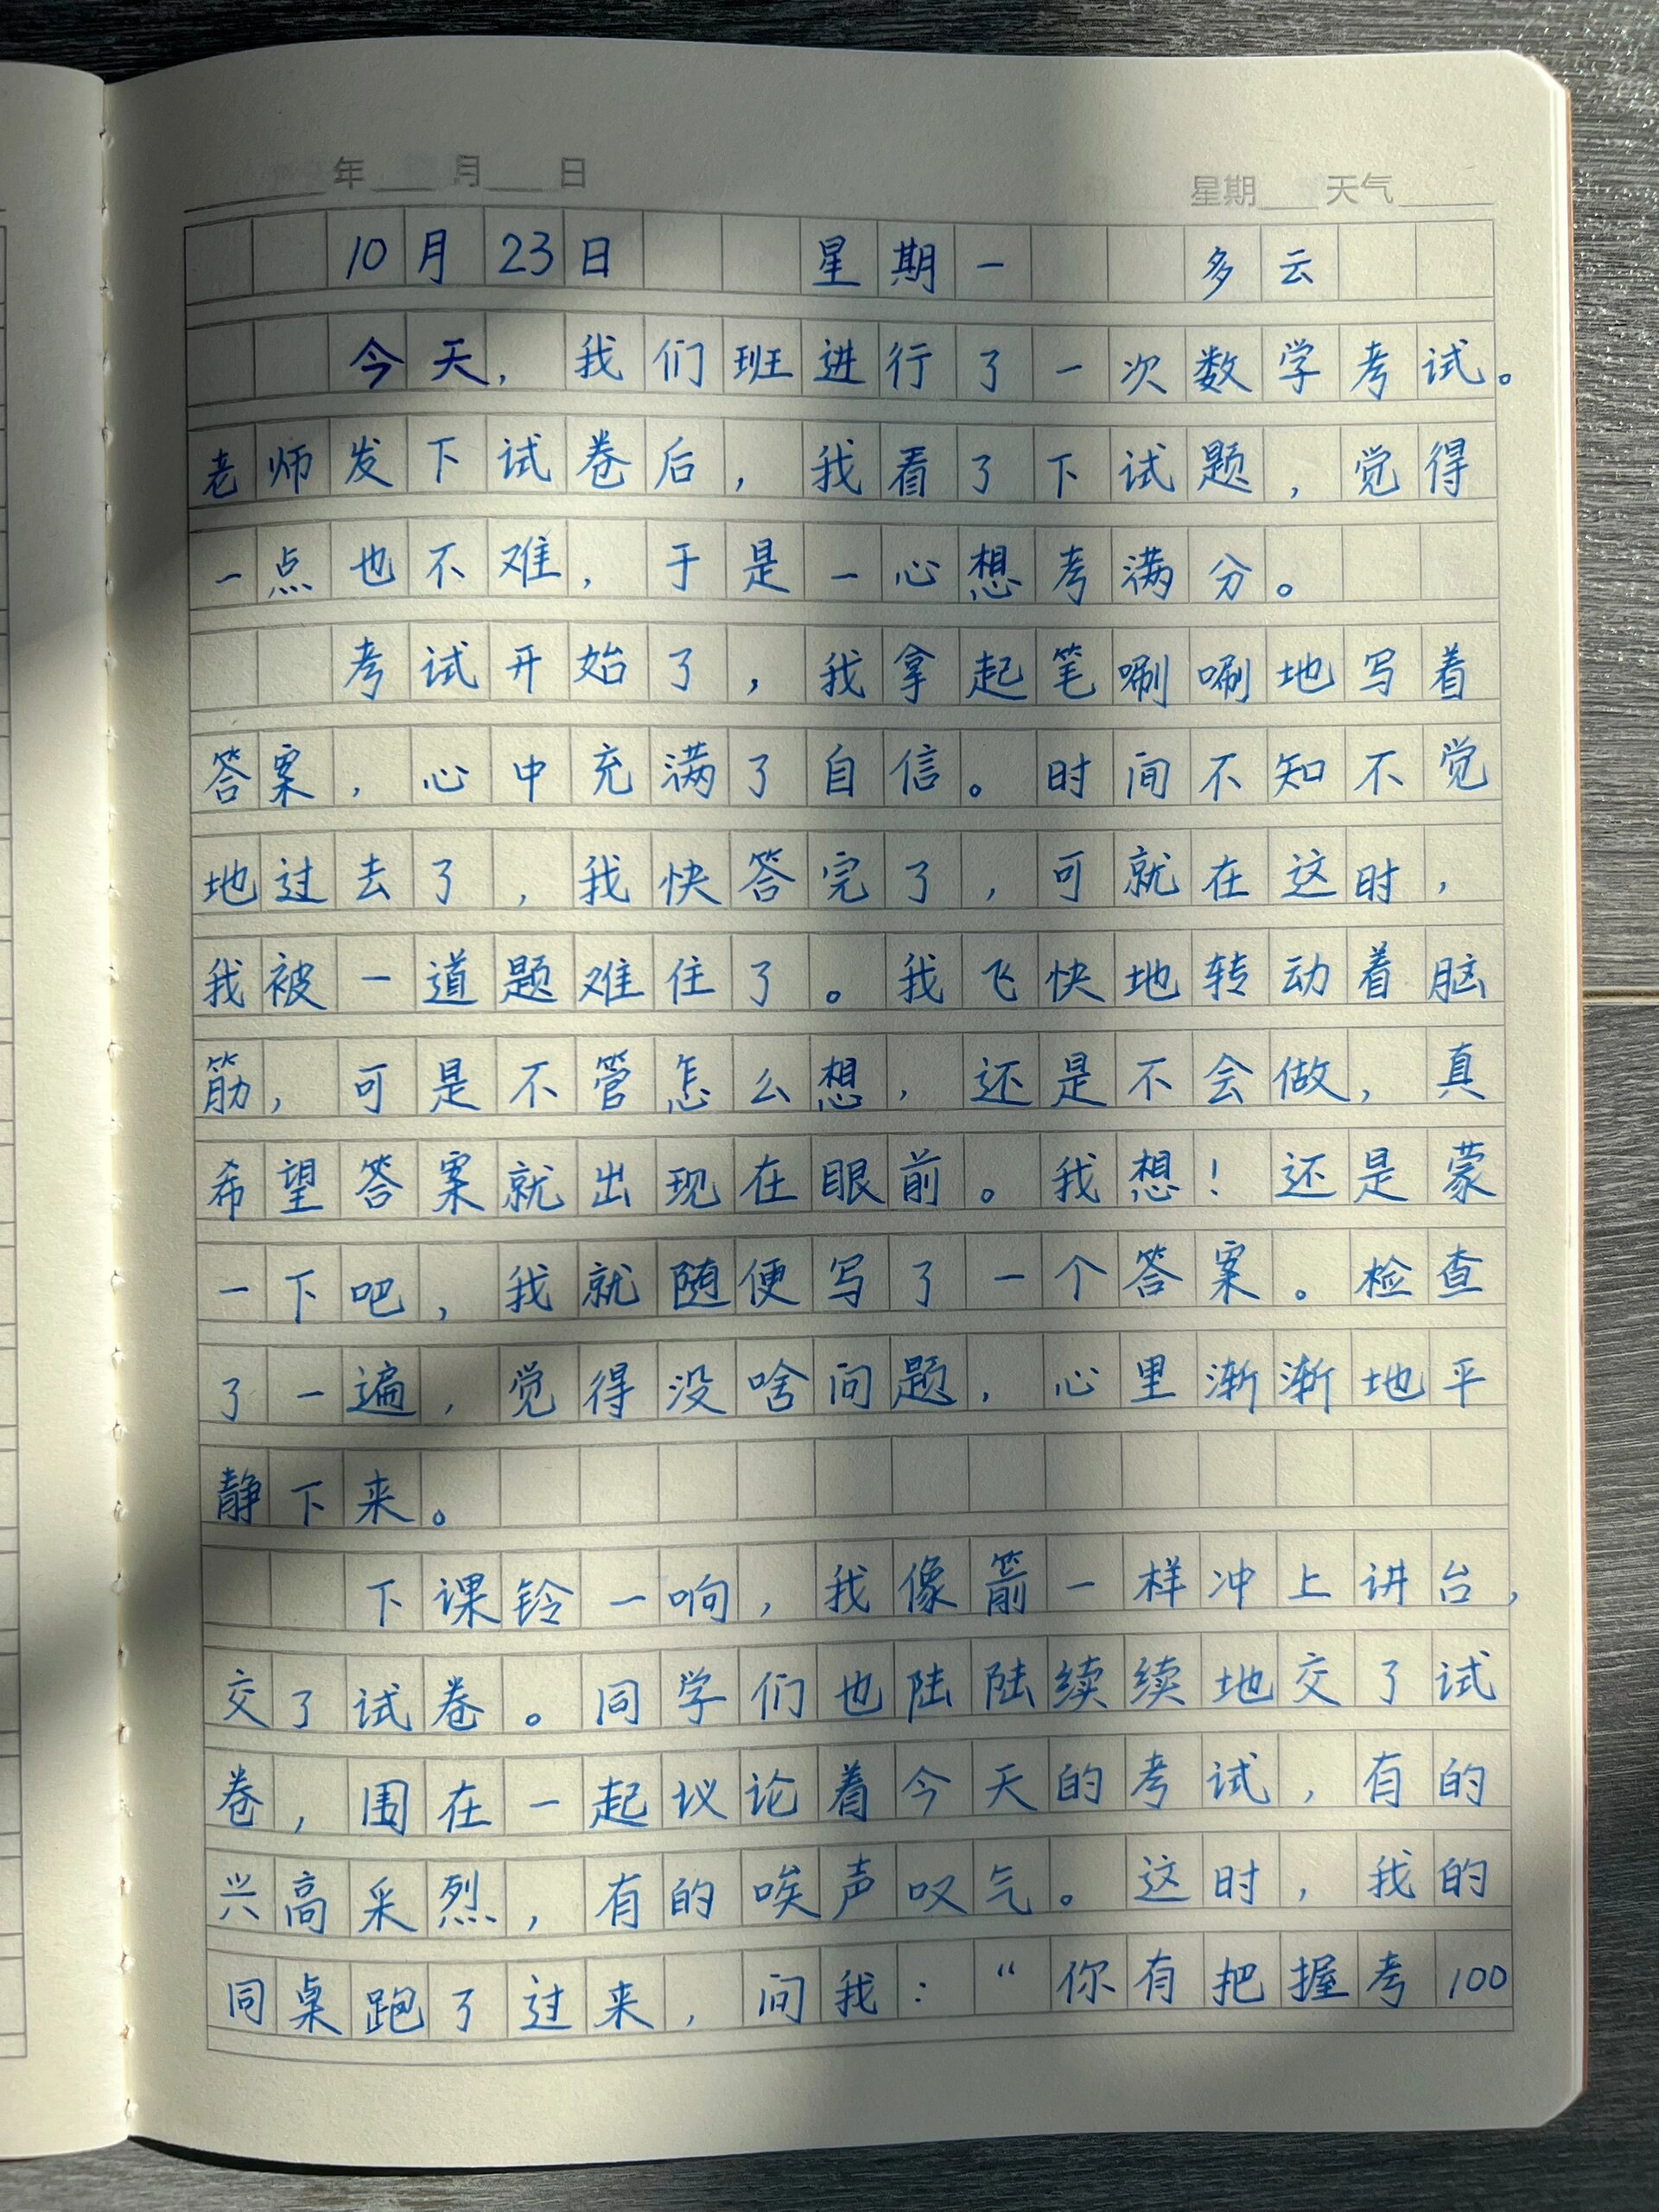 年 月 日 星期 天气
10月23日 星期一 多云
今天，我们班进行了一次数学考试。
老师发下试卷后，我看了下试题，觉得
一点也不难，于是一心想考满分。
考试开始了，我拿起笔唰唰地写着
答案，心中充满了自信。时间不知不觉
地过去了，我快答完了，可就在这时，
我被一道题难住了。我飞快地转动着脑
筋，可是不管怎么想，还是不会做，真
希望答案就出现在眼前。我想！还是蒙
一下吧，我就随便写了一个答案。检查
了一遍，觉得没啥问题，心里渐渐地平
静下来。
下课铃一响，我像箭一样冲上讲台，
交了试卷。同学们也陆陆续续地交了试
卷，围在一起议论着今天的考试，有的
兴高采烈，有的唉声叹气。这时，我的
同桌跑了过来，问我：“你有把握考100